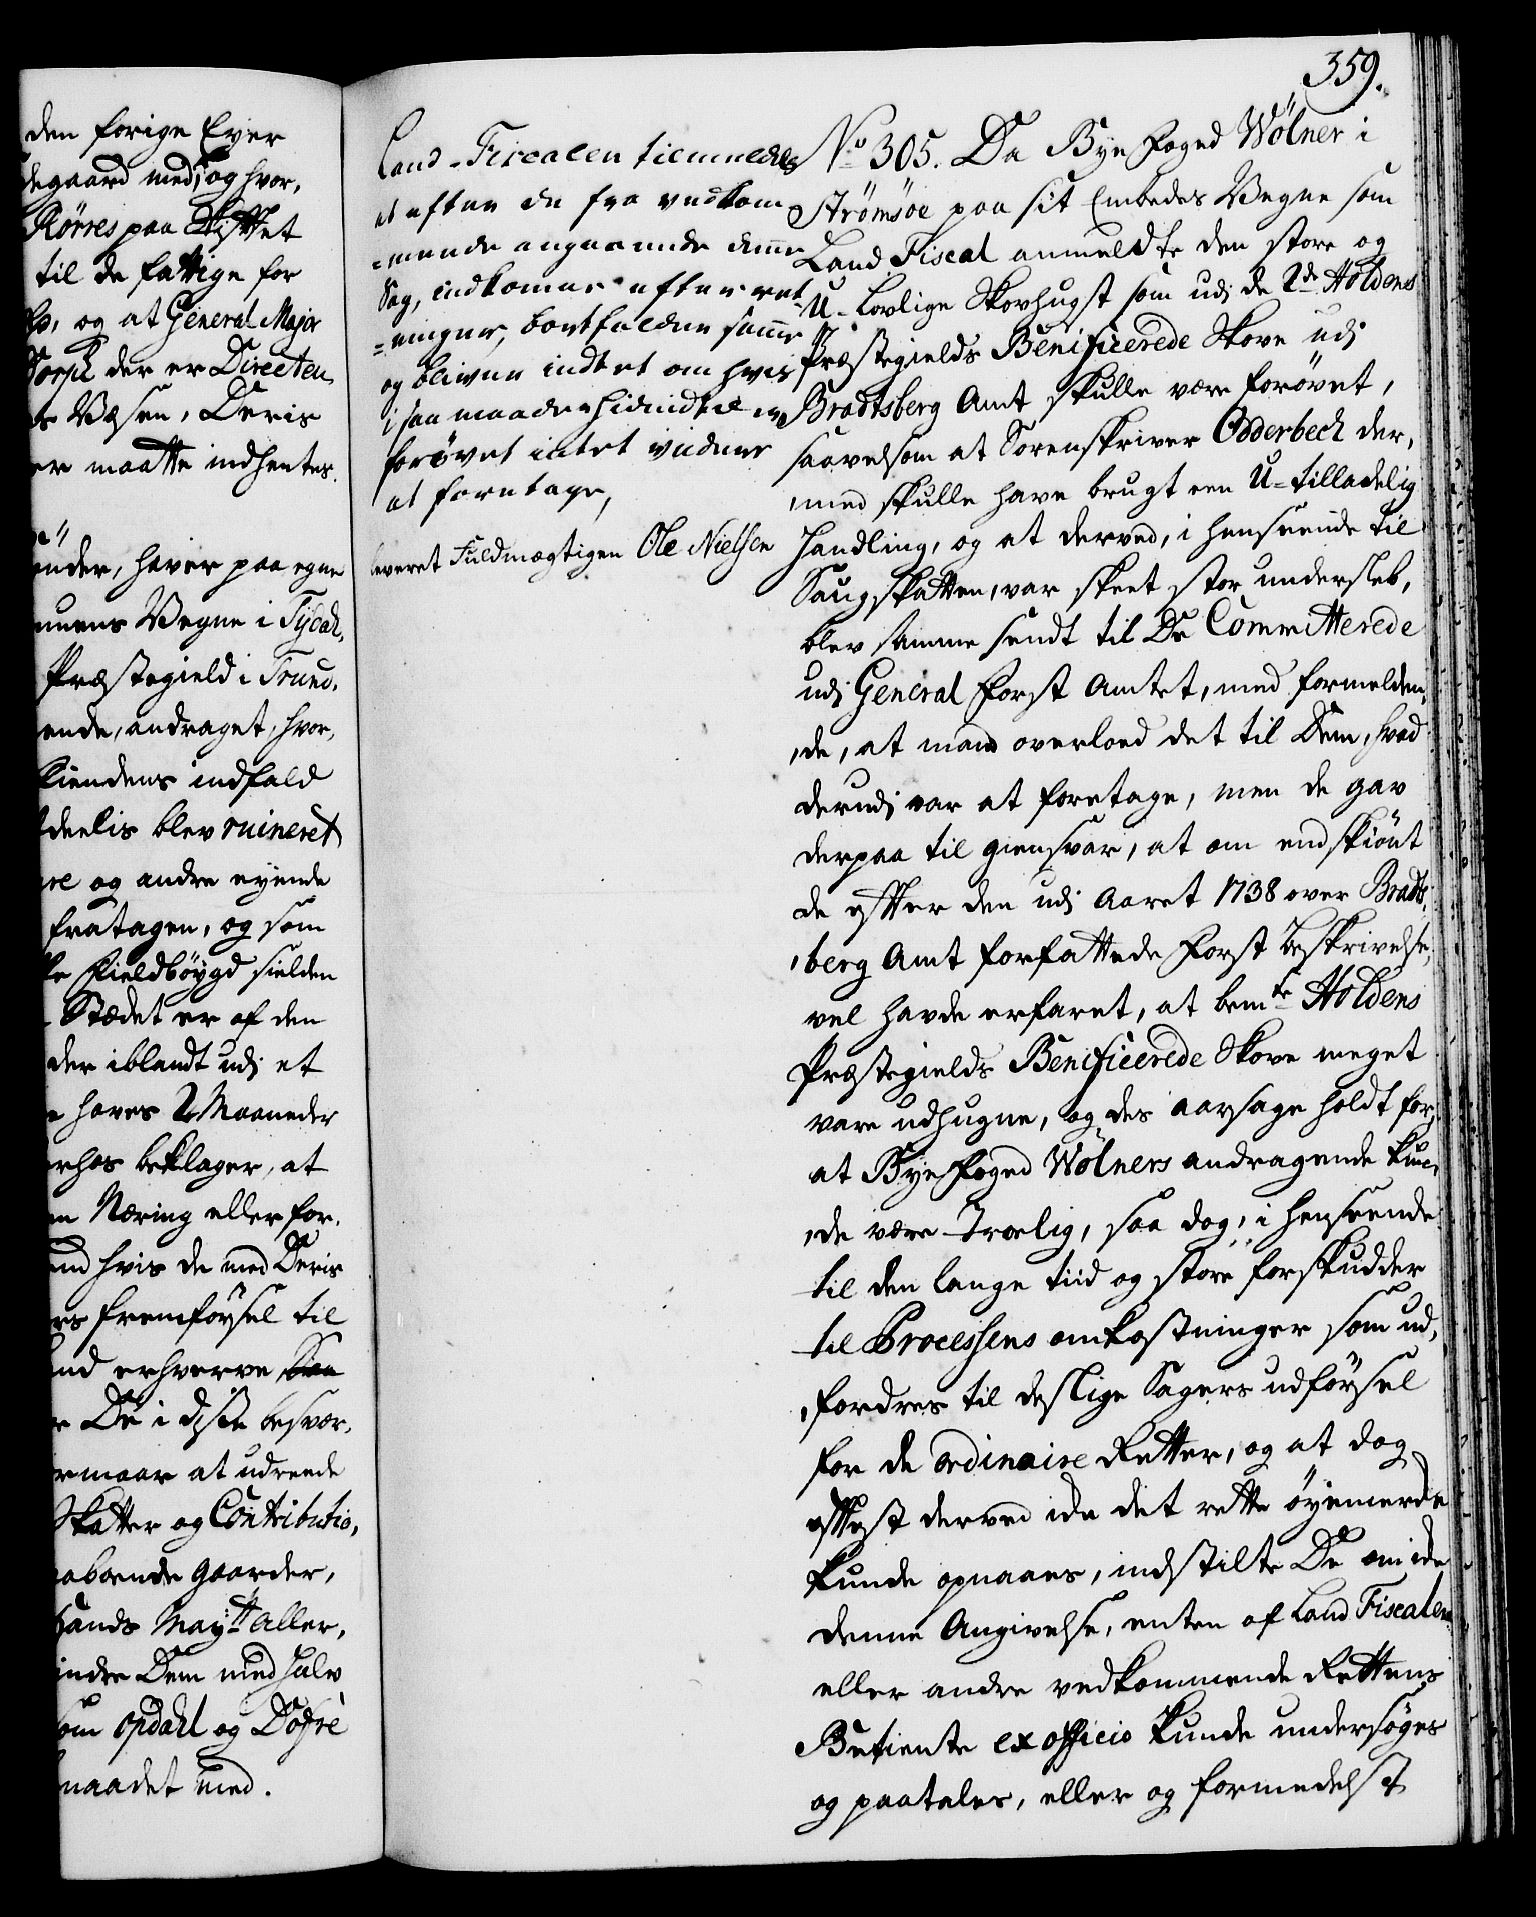 359.
den forige Eyer
degaard med, og hvor,
Rörres paa Stiftet
til de fattige for
og at General Major
der er Directeu,
s Væsen, Deris
er maatte indhentes.
ender, haver paa egne
muens Vegne i Tydal,
Præstegield i Trund,
ende, andraget, hvor,
fiendens indfald
deelis blev ruineret
re og andre eyende
fratagen, og som
ke Fieldböygd sielden
Stædet er af den
der iblandt udj et
e haves 2 Maaneder
erhos beklager, at
en Næring eller for,
end hvis de med Deris
rs fremförsel til
and erhverve
r De i disse besvær,
rmaar at udreede
Skatter og Contributio,
aboende Gaarder,
Hands Mayst. aller,
indre Dem med halv
som Opdahl og Dofre
naadet med.
Land-Fiscalen tilmeldes
at efter de fra vedkom
=mende angaaende denne
Sag, indkomne efterret
=ninger, bortfalder samme
og bliver indtet om hvis
i saa maader hidindtil er
forövet intet videre
at foretage,
leveret Fuldmægtigen Ole Nielsen
No 305. Da Bye Foged Wölner i
Strömsöe paa sit Embedes Vegne som
Land Fiscal anmeldte den store og
U-lovlige Skovhugst som udj de 2de Holdens
Præstegields Benificerede Skove udj
Bradtsberg Amt skulle være forövet,
saavelsom at Sorenskriver Odderbech der,
,med skulle have brugt een U-tilladelig
Handling, og at derved, i henseende til
Saugskatten, var skeet stor undersleb,
blev samme sendt til De Committerede
udj General Forst Amtet, med formelden,
,de, at mand overlod det til Dem, hvad
derudj var at foretage, men de gav
derpaa til giensvar, at om endskiönt
de efter den udj Aaret 1738 over Bradts,
,berg Amt forfattede Forst Beskrivelse,
vel havde erfaret, at bemte Holdens
Præstegields Benificerede Skove meget
vare udhugne, og des aarsage holdt for,
at Bye Foged Wölners andragende kun,
,de være Troelig, saa dog, i henseende
til den lange tiid og store forskudder
til Processens omkostninger som ud,
,fordres til deslige Sagers udförsel
for de ordinaire Retter, og at dog
oftest derved icke det rette öyemerke
kunde opnaaes, indstilte De om icke
denne Angivelse, enten af Land Fiscalen
eller andre vedkommende Rettens
Betiente ex officio kunde undersöges
og paatales, eller og formedelst